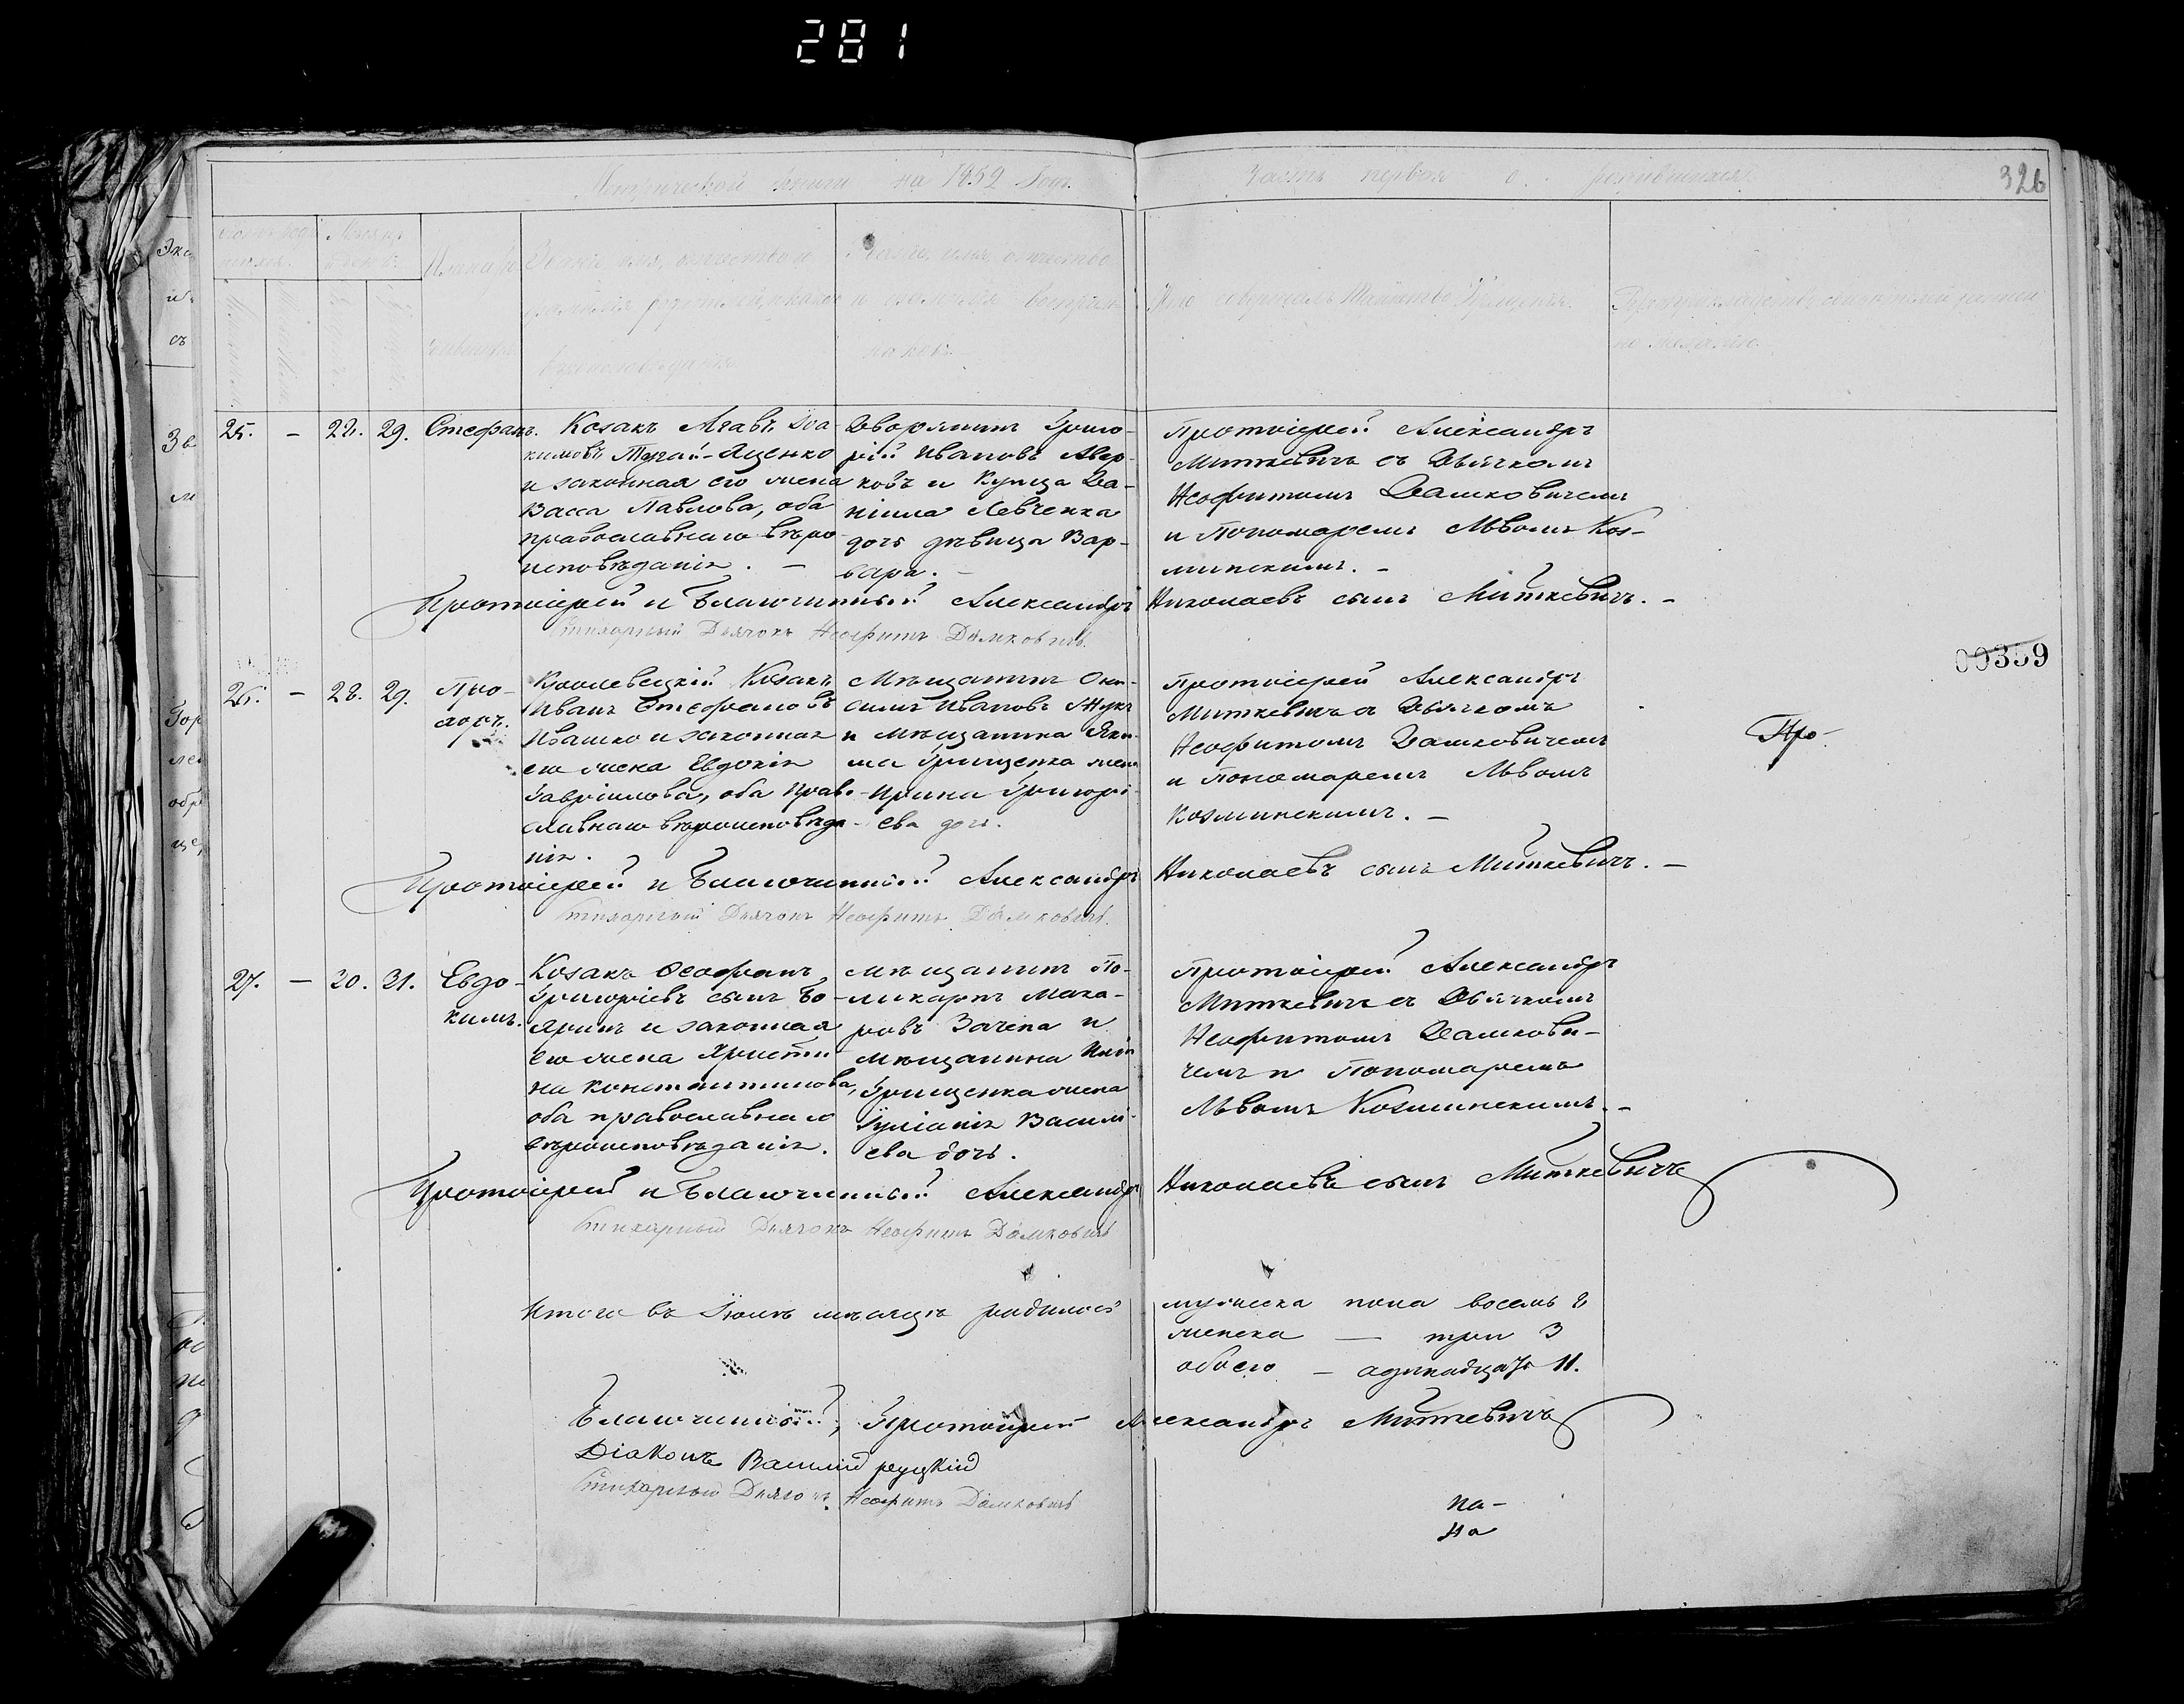 281
Метрической книги на 1859 Годъ.
Часть первая о родившихся.
326
Звание, имя, отчество и
Звание, имя, отчество
Кто совершалъ Таинство Крещенія.
25. — 22. 29. Стефанъ.
Козакъ
кимовъ Тугай-Яценко
и законная его жена
Васса Павлова, оба
православнаго вѣро-
исповѣданія. —
Дворянинъ Григо-
рій Ивановъ Авер-
ковъ и Купца Да-
нiила Левченка
дочь дѣвица Вар-
вара. —
Протоіерей Александръ
Миткевичъ съ Дьячкомъ
Неофитомъ Дашковичемъ
и Пономаремъ Львомъ Коз-
минскимъ. —
Протоіерей и Благочинный Александръ Николаевъ сынъ Миткевичъ. —
Стихарный Дьячокъ Неофитъ Дашковичъ.
00359
26. — 28. 29.
Кролевецкій Козакъ
Иванъ Стефановъ
Ивашко и законная
его жена Евдокія
Гавріилова, оба Право-
славнаго вѣроисповѣда-
нія.
Мѣщанинъ Они-
симъ Ивановъ Жукъ
и мѣщанина Яки-
ма Грищенка жена
Ирина Григорі-
ева дочь.
Протоіерей Александръ
Миткевичъ съ Дьячкомъ
Неофитомъ Дашковичемъ
и Пономаремъ Львомъ
Козминскимъ. —
Про-
Протоіерей и Благочинный Александръ Николаевъ сынъ Миткевичъ. —
Стихарный Дьячокъ Неофитъ Дашковичъ.
27. — 30. 31. Евдо-
кимъ.
Козакъ Ѳеофанъ
Григоріевъ сынъ Бо-
яринъ и законная
его жена Христи-
на Константинова,
оба православнаго
вѣроисповѣданія.
Мѣщанинъ По-
ликарпъ Мака-
ровъ Зачепа и
мѣщанина
Грищенка жена
Іуліанія Василі-
ева дочь.
Протоіерей Александръ
Миткевичъ съ Дьячкомъ
Неофитомъ Дашкови-
чемъ и Пономаремъ
Львомъ Козминскимъ. —
Протоіерей и Благочинный Александръ Николаевъ сынъ Миткевичъ
Стихарный Дьячокъ Неофитъ Дашковичъ
Итого въ мѣсяцѣ родилось мужеска пола восемь 8
женска — три 3
обоего — одинадцать 11.
Благочинный, Протоіерей Александръ Миткевичъ
Діаконъ Василій Руцкій
Стихарный Дьячокъ Неофитъ Дашковичъ
па-
на